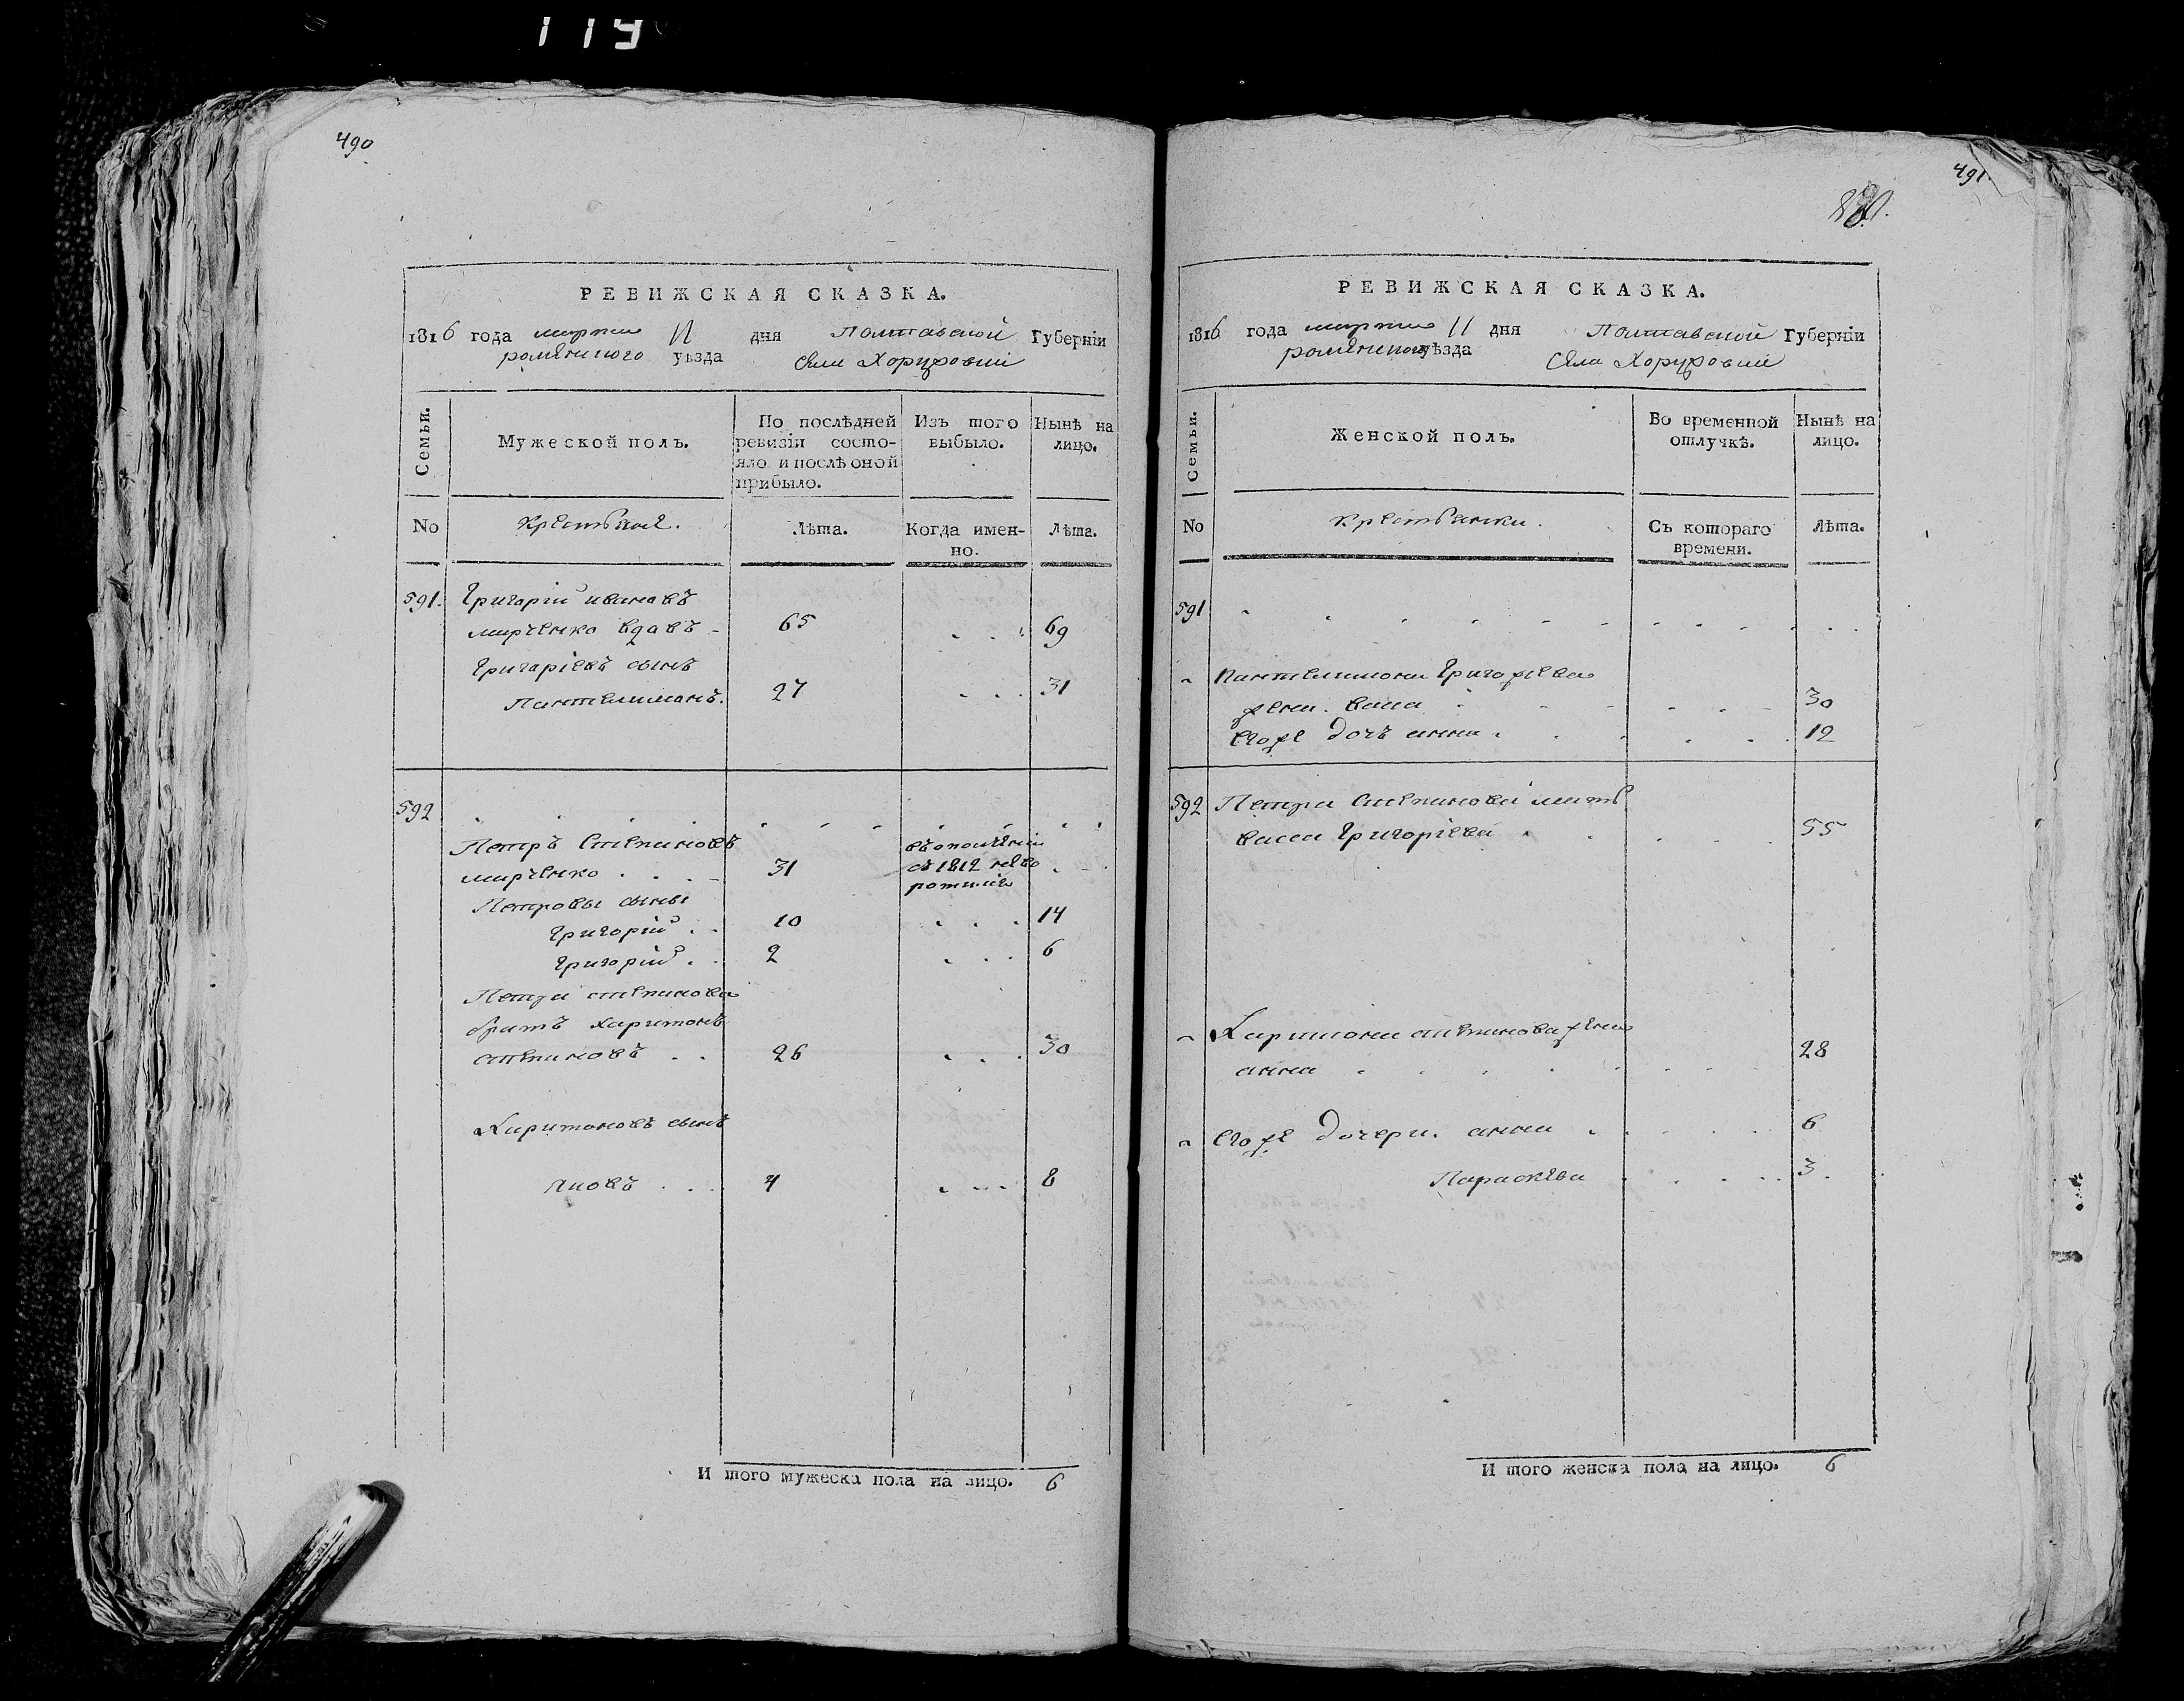 119
490
РЕВИЖСКАЯ СКАЗКА.
1816 года марта 11 дня Полтавской Губерніи
роменского уѣзда Села Хоружовки
Семьи.
Мужеской полъ.
По послѣдней ревизіи состо-
яло и послѣ оной
прибыло.
Изъ того
выбыло.
Нынѣ на
лицо.
No
Крестьяне.
Лѣта.
Когда имен-
но.
Лѣта.
591. Григорій ивановъ
мирченко вдовъ 65 69
Григоріевъ сынъ
Пантелимонъ. 27 31
592
Петръ Степановъ
мирченко 31 въ ополченіи
съ 1812
Петровы сыны
Григорій 10 14
Григорій 2 6
Петра степанова
братъ харитонъ
степановъ 26 30
Харитоновъ сынъ
яковъ 4 8
И того мужеска пола на лицо. 6
491.
РЕВИЖСКАЯ СКАЗКА.
1816 года марта 11 дня Полтавской Губерніи
роменского уѣзда Села Хоружовки
Семьи.
Женской полъ.
Во временной
отлучкѣ.
Нынѣ на
лицо.
No
крестьянки.
Съ котораго
времени.
Лѣта.
591
Пантелимона Григорьева
жена 30
Егоже дочь анна 12
592 Петра Степанова мать
васса Григоріева 55
Харитона степанова жена
анна 28
Егоже дочери. анна 6
Параскева 3
И того женска пола на лицо. 6